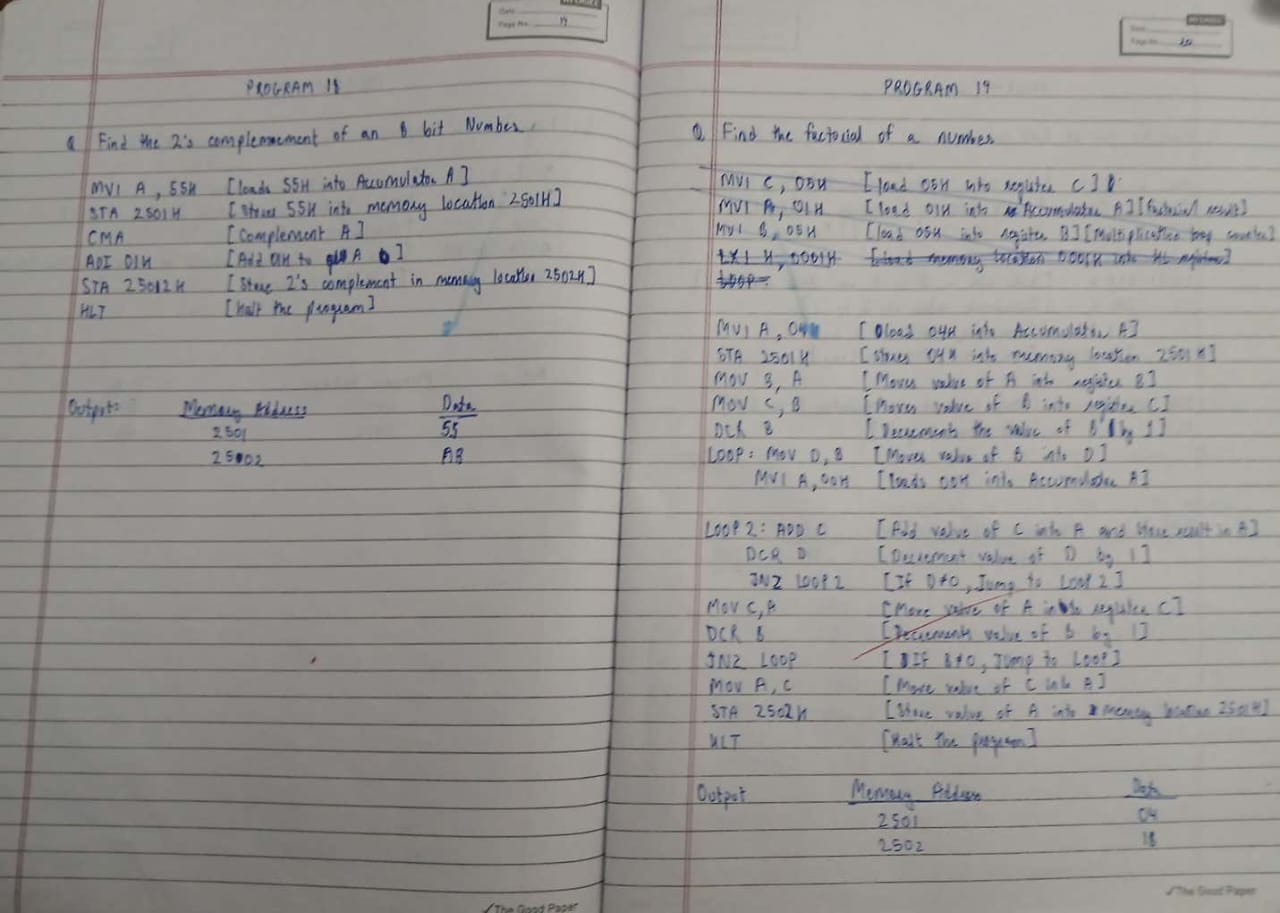 Page No. 19
PROGRAM 18
Q Find the 2's complemement of an 8 bit Number.
MVI A, 55H [loads 55H into Accumulator A]
STA 2501H [Stores 55H into memory location 2501H]
CMA [Complement A]
ADI 01H [Add 01H to A]
STA 2502H [Store 2's complement in memory location 2502H]
HLT [Halt the program]
Output: Memory Address Data
2501 55
2502 AB
✓The Good Paper
Page No. 20
PROGRAM 19
Q Find the factorial of a number
MVI C, 05H [load 05H into register C]
MVI A, 01H [load 01H into Accumulator A] [factorial result]
MVI B, 05H [load 05H into register B] [Multiplication loop counter]
LXI H, 0001H [Load memory location 0001H into HL register]
LOOP:
MVI A, 04 [load 04H into Accumulator A]
STA 2501H [Stores 04H into memory location 2501H]
MOV B, A [Moves value of A into register B]
MOV C, B [Moves value of B into register C]
DCR B [Decrements the value of B by 1]
LOOP: MOV D, B [Moves value of B into D]
MVI A, 00H [loads 00H into Accumulator A]
LOOP 2: ADD C [Add value of C into A and store result in A]
DCR D [Decrement value of D by 1]
JNZ LOOP 2 [If D≠0, Jump to LOOP 2]
MOV C, A [Move value of A into register C]
DCR B [Decrements value of B by 1]
JNZ LOOP [If B≠0, Jump to LOOP]
MOV A, C [Move value of C into A]
STA 2502H [Store value of A into memory location 2501H]
HLT [Halt the program]
Output Memory Address Data
2501 04
2502 18
✓The Good Paper